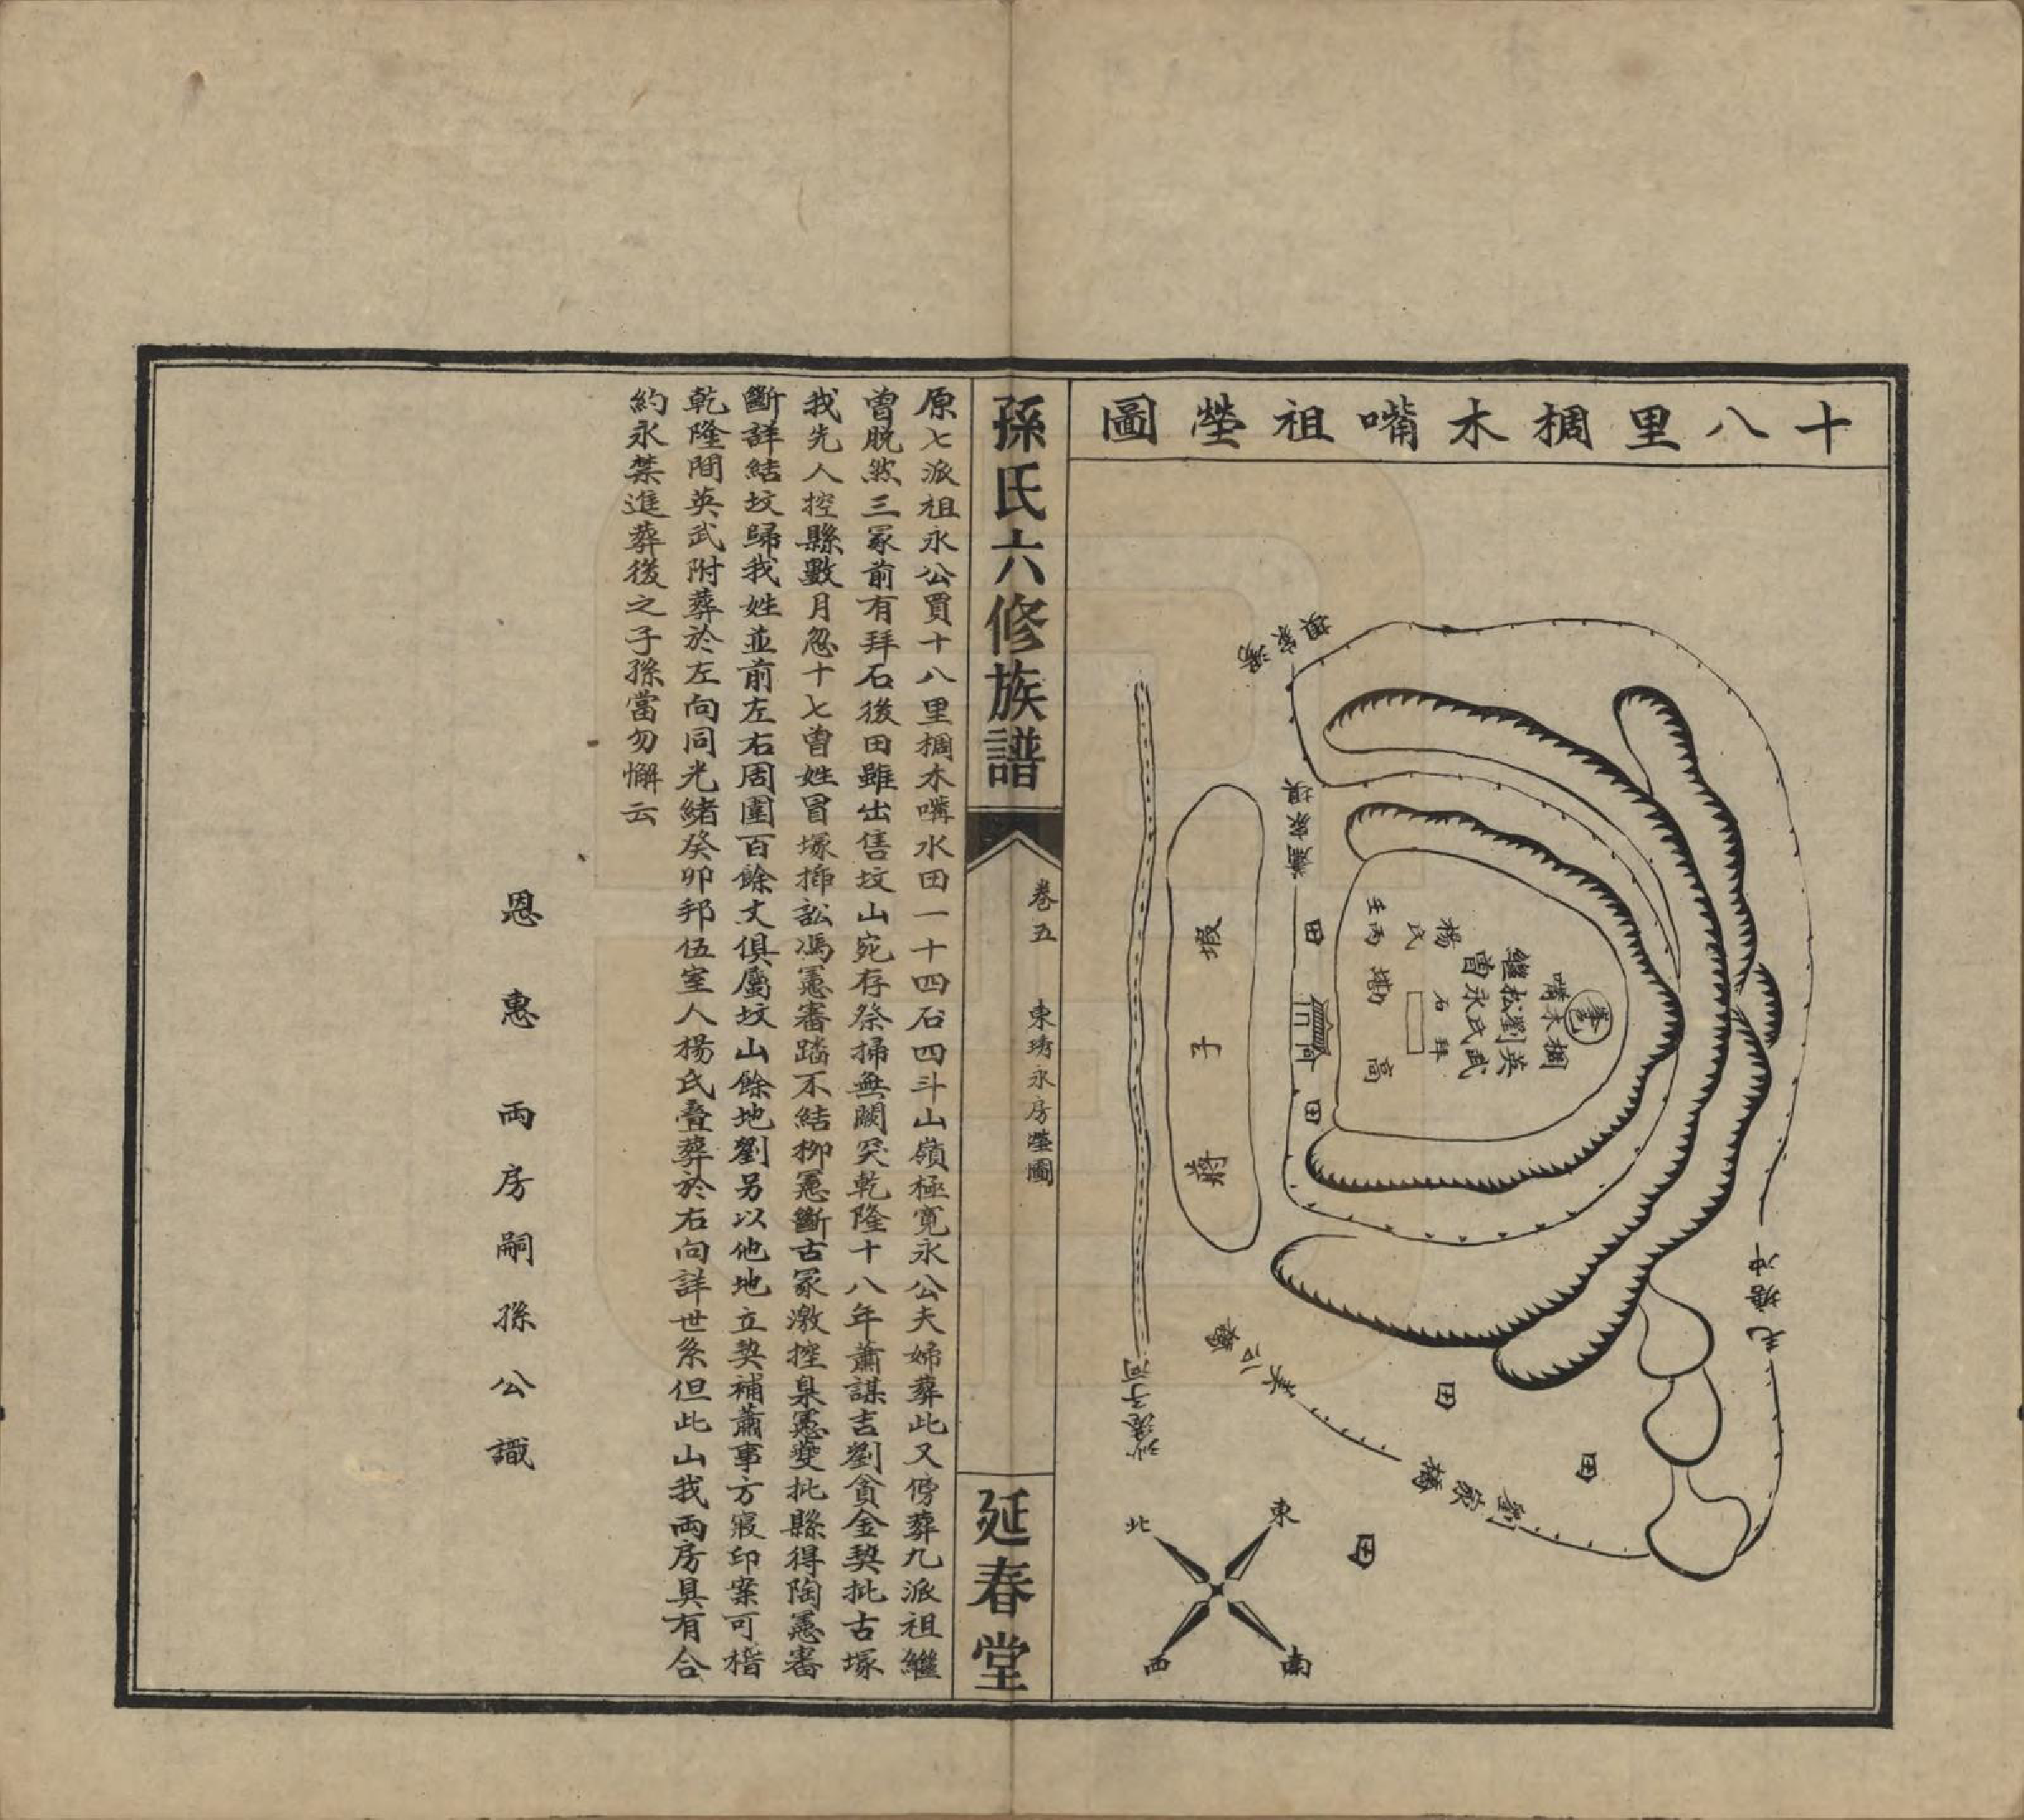 十八里椆木嘴祖塋圖
吳家灣
蕭家垻
田
田
壬丙
勘
高
楊氏
拜石
曾永氏武
繼松劉英
椆木嘴
蔣子塅
毛塘冲
田
田
田
劉家
美公
沙溪子河
東
南
西
北
孫氏六修族譜
卷五
東琇永房塋圖
延春堂
原七派祖永公買十八里椆木嘴水田一十四石四斗山嶺極寬永公夫婦葬此又傍葬九派祖繼
曾脫然三冢前有拜石後田雖出售坟山宛存祭掃無闕突乾隆十八年蕭謀吉劉貪金契批古塚
我先人控縣數月忽十七曾姓冒塚揷訟馮憲審踏不結柳憲斷古冢激控臬憲夔批縣得陶憲審
斷詳結坟歸我姓並前左右周圍百餘丈俱屬坟山餘地劉另以他地立契補蕭事方寢印案可稽
乾隆間英武附葬於左向同光緒癸卯邦伍室人楊氏叠葬於右向詳世系但此山我兩房具有合
約永禁進葬後之子孫當勿懈云
恩惠兩房嗣孫公識